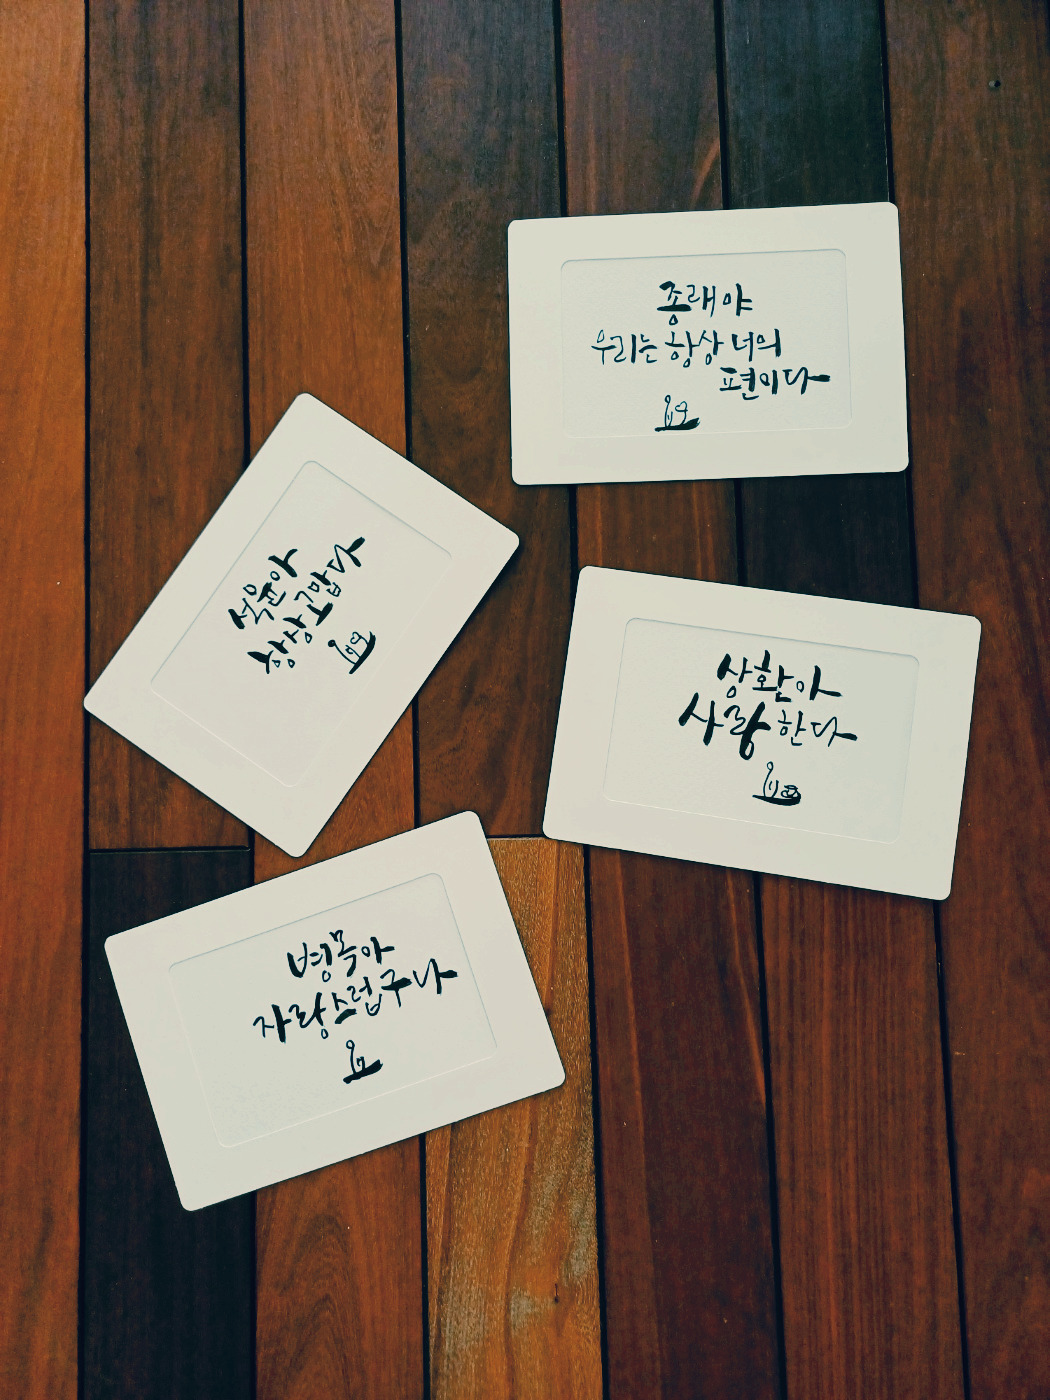 종래야
우리는 항상 너의
편이다
석윤아
항상 고맙다
상환아
사랑한다
병목아
자랑스럽구나